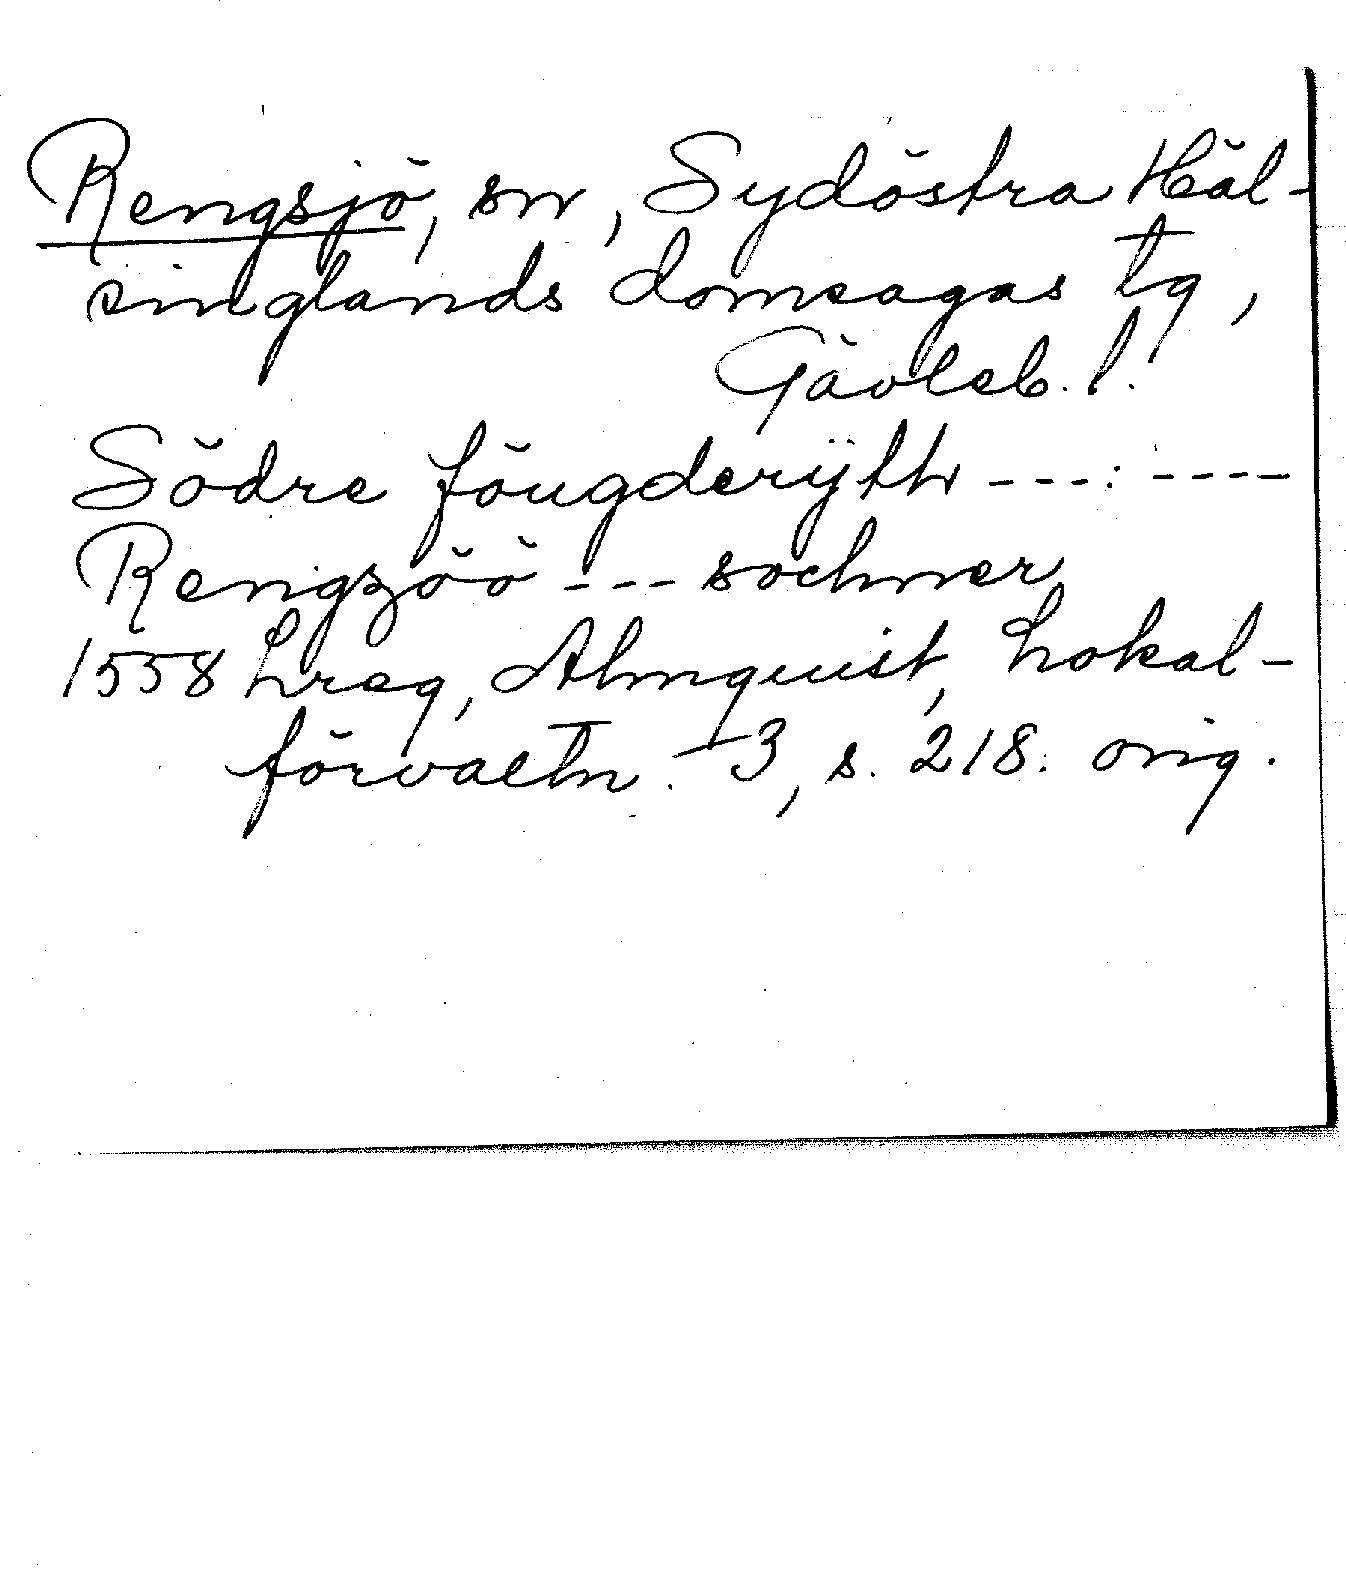 Rengsjö, sn, Sydöstra Häl-
singlands domsagas tg,
Gävleb. l.
Södre föugderÿth ---:----
Rengzöö --- sochner
1558 Lreg, Almquist, Lokal-
förvaltn. 3, s. 218. orig.